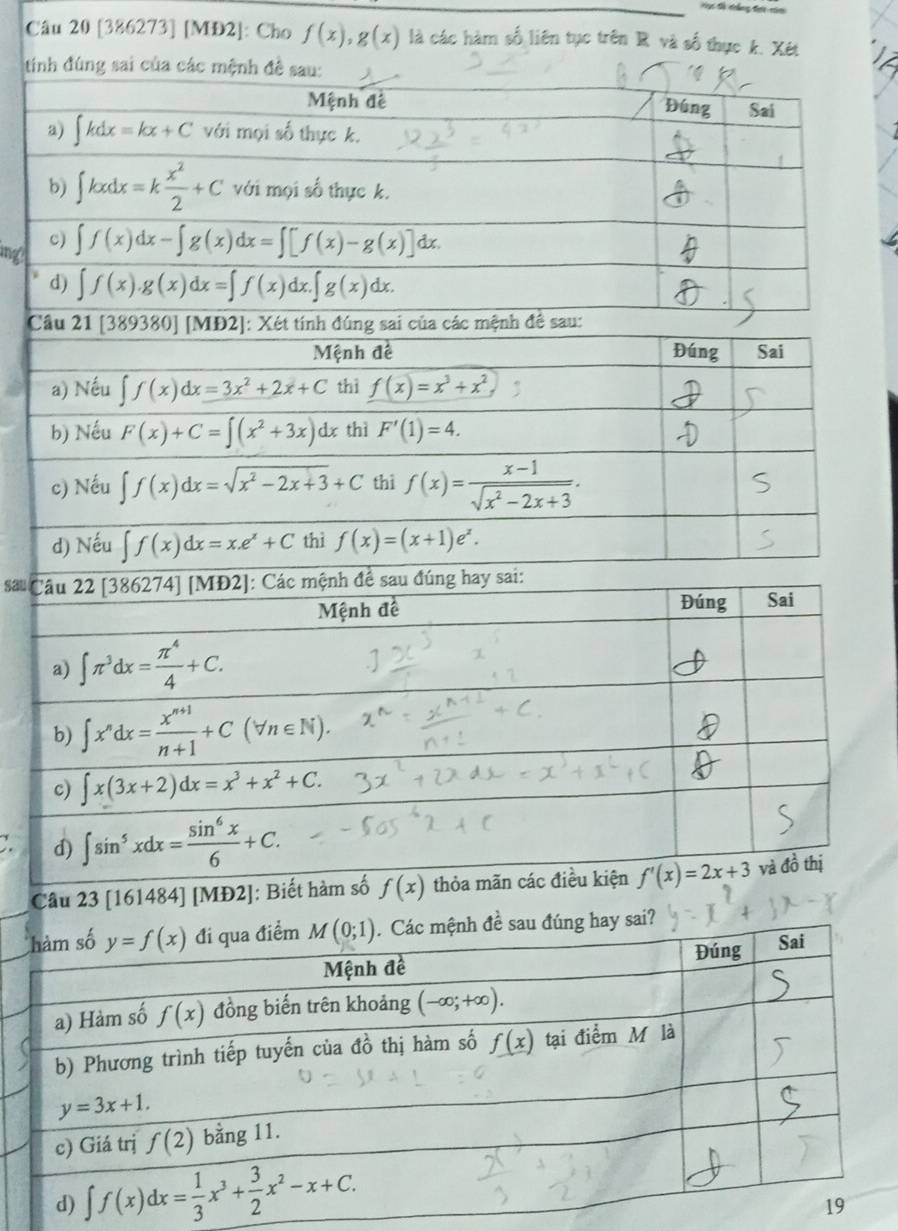 Câu 20 [386273] [MĐ2]: Cho f(x), g(x) là các hàm số liên tục trên R và số thực k. Xét
tính đúng sai của các mệnh đề sau:
Mệnh đề Đúng Sai
a) ∫kdx = kx + C với mọi số thực k.
b) ∫kxdx = k x²/2 + C với mọi số thực k.
c) ∫f(x)dx − ∫g(x)dx = ∫[f(x) − g(x)]dx.
d) ∫f(x).g(x)dx = ∫f(x)dx.∫g(x)dx.
S
Câu 21 [389380] [MĐ2]: Xét tính đúng sai của các mệnh đề sau:
Mệnh đề Đúng Sai
a) Nếu ∫f(x)dx = 3x² + 2x + C thì f(x) = x³ + x². Đ S
b) Nếu F(x) + C = ∫(x² + 3x)dx thì F'(1) = 4. Đ
c) Nếu ∫f(x)dx = √(x² − 2x + 3) + C thì f(x) = (x−1)/√(x² − 2x + 3). S
d) Nếu ∫f(x)dx = x.eˣ + C thì f(x) = (x+1)eˣ. S
sau Câu 22 [386274] [MĐ2]: Các mệnh đề sau đúng hay sai:
Mệnh đề Đúng Sai
a) ∫π³dx = π⁴/4 + C. Đ
b) ∫xⁿdx = xⁿ⁺¹/(n+1) + C (∀n ∈ ℕ). xⁿ = xⁿ⁺¹/(n+1) + C. Đ
c) ∫x(3x + 2)dx = x³ + x² + C. 3x² + 2x dx = x³ + x² + C Đ
d) ∫sin⁵xdx = sin⁶x/6 + C. S
Câu 23 [161484] [MĐ2]: Biết hàm số f(x) thỏa mãn các điều kiện f'(x) = 2x + 3 và đồ thị
hàm số y = f(x) đi qua điểm M(0;1). Các mệnh đề sau đúng hay sai?
Mệnh đề Đúng Sai
a) Hàm số f(x) đồng biến trên khoảng (−∞;+∞). S
b) Phương trình tiếp tuyến của đồ thị hàm số f(x) tại điểm M là S
y = 3x + 1.
c) Giá trị f(2) bằng 11. S
d) ∫f(x)dx = 1/3 x³ + 3/2 x² − x + C. Đ S
19